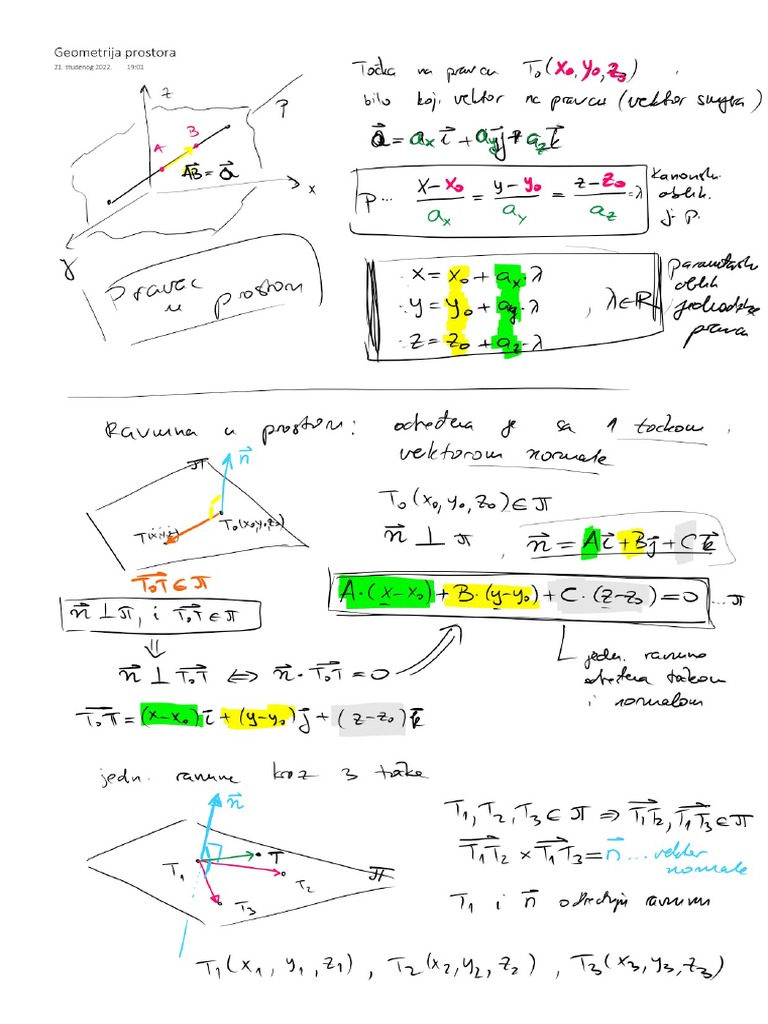 Geometrija prostora
21. studenog 2022. 19:01
Točka na pravcu T₀(x₀,y₀,z₀)
bilo koji vektor na pravcu (vektor smjera)
a⃗ = aₓi⃗ + a_y j⃗ + a_z k⃗
z
p
A
B
AB⃗ = a⃗
x
y
p... (x-x₀)/aₓ = (y-y₀)/a_y = (z-z₀)/a_z = λ
kanonski
oblik
j. p.
Pravac
u prostoru
x = x₀ + aₓ·λ
y = y₀ + a_y·λ , λ∈R
z = z₀ + a_z·λ
parametarski
oblik
jednadžbe
pravca
Ravnina u prostoru: određena je sa 1 točkom,
vektorom normale
π
n⃗
T(x,y,z)
T₀(x₀,y₀,z₀)
T₀(x₀,y₀,z₀)∈π
n⃗ ⊥ π , n⃗ = Ai⃗ + Bj⃗ + Ck⃗
T₀T⃗ ∈ π
n⃗ ⊥ π, i T₀T⃗ ∈ π
A·(x-x₀)+B·(y-y₀)+C·(z-z₀)=0 ...π
⇓
n⃗ ⊥ T₀T⃗ ⇔ n⃗·T₀T⃗ = 0
jedn. ravnine
određena točkom
i normalom
T₀T⃗ = (x-x₀)i⃗ + (y-y₀)j⃗ + (z-z₀)k⃗
jedn. ravnine kroz 3 točke
n⃗
T₁
T
T₂
T₃
π
T₁,T₂,T₃∈π ⇒ T₁T₂⃗,T₁T₃⃗∈π
T₁T₂⃗ × T₁T₃⃗ = n⃗ ... vektor
normale
T₁ i n⃗ određuju ravninu
T₁(x₁,y₁,z₁), T₂(x₂,y₂,z₂), T₃(x₃,y₃,z₃)